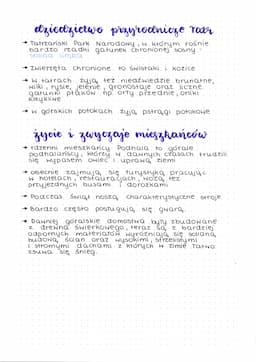 dziedzictwo przyrodnicze Tatr
→ Tatrzański Park Narodowy, w którym rośnie
bardzo rzadki gatunek chronionej sosny -
sosna limba
→ zwierzęta chronione to świstaki i kozice
→ w Tatrach żyją też niedźwiedzie brunatne,
wilki, rysie, jelenie, gronostaje oraz liczne
gatunki ptaków np. orły przednie, orliki
krzykliwe
→ w górskich potokach żyją pstrągi potokowe
życie i zwyczaje mieszkańców
→ rdzenni mieszkańcy Podhala to górale
podhalańscy, którzy w dawnych czasach trudzili
się wypasem owiec i uprawą ziemi
→ obecnie zajmują się turystyką pracując
w hotelach, restauracjach, wożą też
przyjezdnych busami i dorożkami
→ Podczas świąt noszą charakterystyczne stroje
→ Bardzo często posługują się gwarą
→ Dawniej góralskie domostwa były zbudowane
z drewna świerkowego, teraz są z bardziej
odpornych materiałów wyróżniają się
budową ścian oraz wysokimi, strzelistymi
i stromymi dachami z których w zimie łatwo
zsuwa się śnieg.